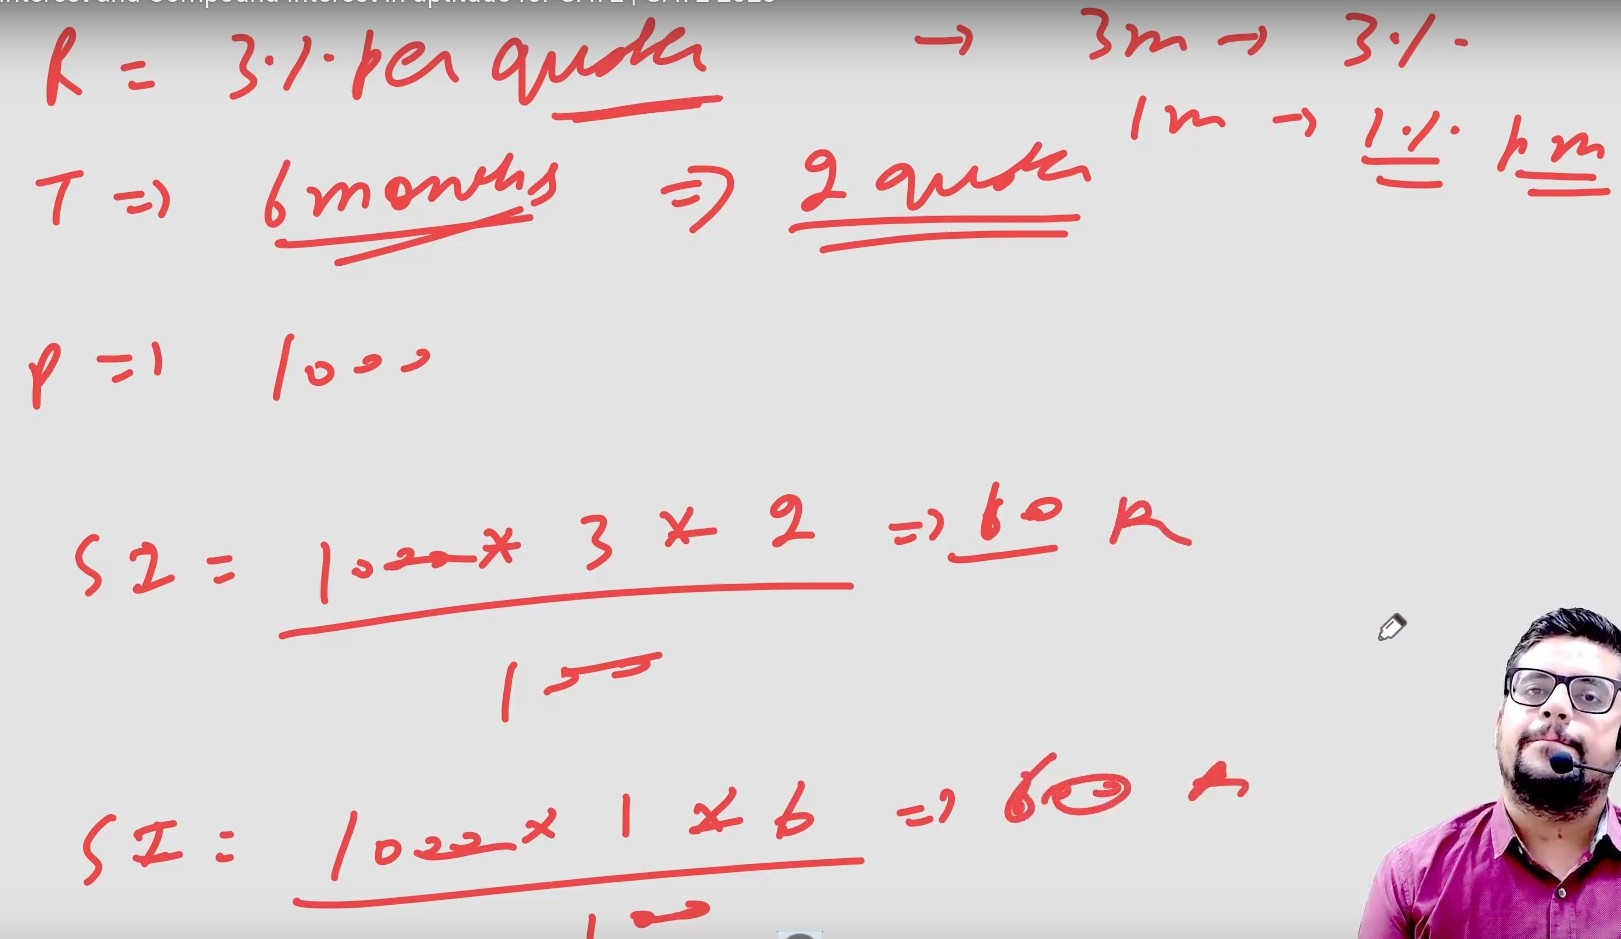 Interest and Compound Interest in aptitude for GATE | GATE 2023
R = 3% per quater → 3m → 3%
1m → 1% pm
T => 6 months => 2 quater
P => 1000
SI = 1000 * 3 * 2 => 60 R
100
SI = 1000 * 1 * 6 => 60 R
100